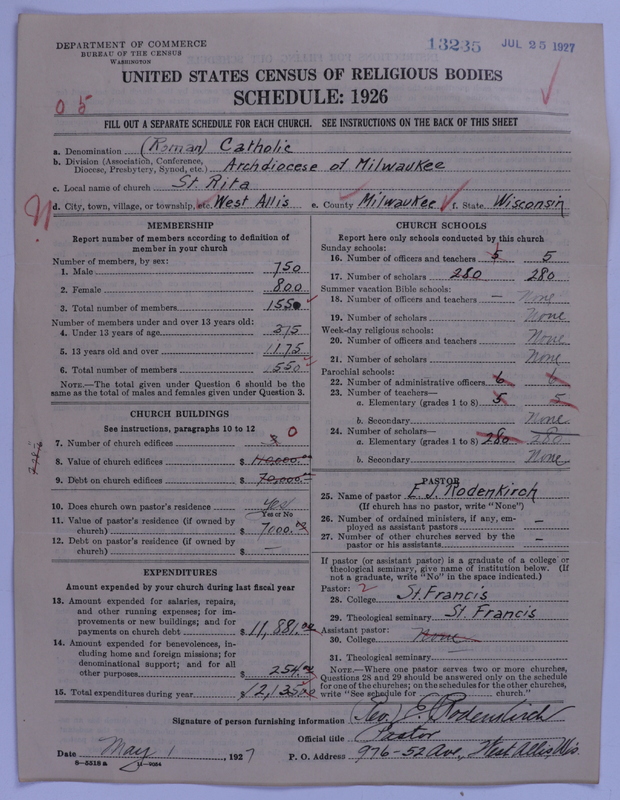 DEPARTMENT OF COMMERCE
BUREAU OF THE CENSUS
WASHINGTON
13235 JUL 25 1927
UNITED STATES CENSUS OF RELIGIOUS BODIES
SCHEDULE: 1926
0 5
FILL OUT A SEPARATE SCHEDULE FOR EACH CHURCH. SEE INSTRUCTIONS ON THE BACK OF THIS SHEET
a. Denomination (Roman) Catholic
b. Division (Association, Conference, Diocese, Presbytery, Synod, etc.) Archdiocese of Milwaukee
c. Local name of church St. Rita
d. City, town, village, or township, etc. West Allis e. County Milwaukee f. State Wisconsin
MEMBERSHIP
Report number of members according to definition of
member in your church
Number of members, by sex:
1. Male 750
2. Female 800
3. Total number of members 1550
Number of members under and over 13 years old:
4. Under 13 years of age 375
5. 13 years old and over 1175
6. Total number of members 1550
NOTE.—The total given under Question 6 should be the
same as the total of males and females given under Question 3.
CHURCH BUILDINGS
See instructions, paragraphs 10 to 12
7. Number of church edifices 0
8. Value of church edifices $ 140,000.
9. Debt on church edifices $ 70,000.
10. Does church own pastor's residence Yes
Yes or No
11. Value of pastor's residence (if owned by
church) $ 7000.
12. Debt on pastor's residence (if owned by
church) $ —
EXPENDITURES
Amount expended by your church during last fiscal year
13. Amount expended for salaries, repairs,
and other running expenses; for im-
provements or new buildings; and for
payments on church debt $ 11,881.00
14. Amount expended for benevolences, in-
cluding home and foreign missions; for
denominational support; and for all
other purposes $ 254.00
15. Total expenditures during year $ 12,135.00
CHURCH SCHOOLS
Report here only schools conducted by this church
Sunday schools:
16. Number of officers and teachers 5 5
17. Number of scholars 280 280
Summer vacation Bible schools:
18. Number of officers and teachers — None
19. Number of scholars None
Week-day religious schools:
20. Number of officers and teachers None
21. Number of scholars None
Parochial schools:
22. Number of administrative officers 6 6
23. Number of teachers—
a. Elementary (grades 1 to 8) 5 5
b. Secondary None
24. Number of scholars—
a. Elementary (grades 1 to 8) 280 280
b. Secondary None
PASTOR
25. Name of pastor E. J. Rodenkirch
(If church has no pastor, write "None")
26. Number of ordained ministers, if any, em-
ployed as assistant pastors —
27. Number of other churches served by the
pastor or his assistants —
If pastor (or assistant pastor) is a graduate of a college or
theological seminary, give name of institution below. (If
not a graduate, write "No" in the space indicated.)
Pastor: 2
28. College St. Francis
29. Theological seminary St. Francis
Assistant pastor:
30. College None
31. Theological seminary
NOTE.—Where one pastor serves two or more churches,
Questions 28 and 29 should be answered only on the schedule
for one of the churches; on the schedules for the other churches,
write "See schedule for church."
Signature of person furnishing information (Rev.) E. J. Rodenkirch
Official title Pastor
Date May 1, 1927 P. O. Address 976-52 Ave., West Allis, Wis.
8-5518a 11-9084